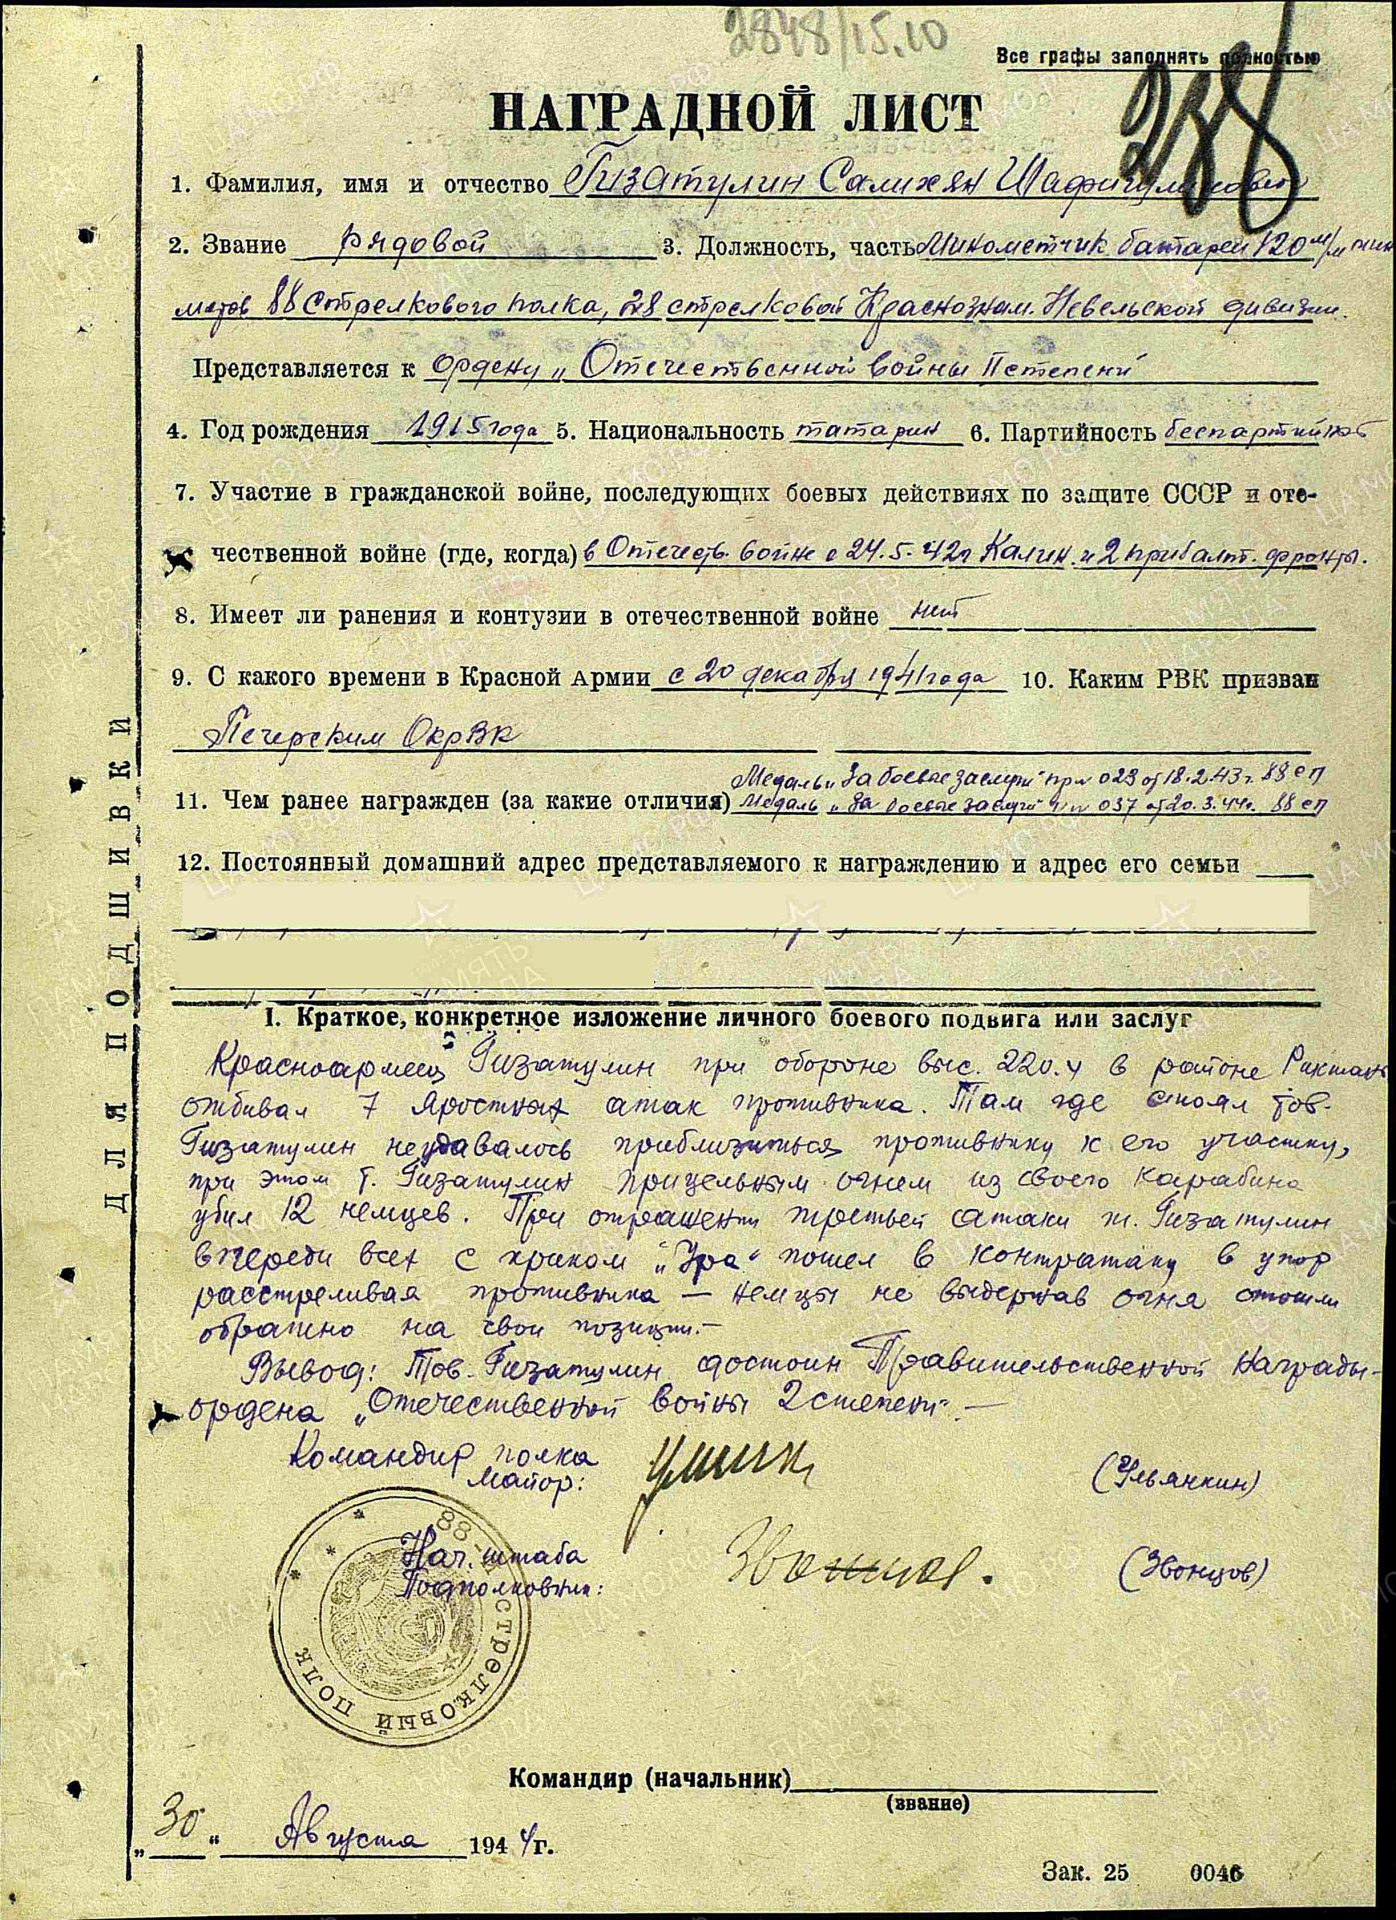 2848/15.10
Все графы заполнять полностью
288
НАГРАДНОЙ ЛИСТ
1. Фамилия, имя и отчество Гизатулин Салихян
2. Звание рядовой 3. Должность, часть Минометчик батареи 120 м/м мин
метов 88 стрелкового полка, 28 стрелковой Краснознам. Невельской дивизии.
Представляется к ордену „Отечественной войны II степени
4. Год рождения 1915 года 5. Национальность татарин 6. Партийность
7. Участие в гражданской войне, последующих боевых действиях по защите СССР и оте-
чественной войне (где, когда) в Отечеств. войне с 24.5.42г Калин. и 2 прибалт. фронты.
8. Имеет ли ранения и контузии в отечественной войне нет
9. С какого времени в Красной Армии с 20 декабря 1941 года 10. Каким РВК призван
Печерским ОкрВК
Медаль „За боевые заслуги" пр № 023 от 18.2.43г. 88 сп
11. Чем ранее награжден (за какие отличия) Медаль „За боевые заслуги" пр № 037 от 20.3.44г. 88 сп
12. Постоянный домашний адрес представляемого к награждению и адрес его семьи
I. Краткое, конкретное изложение личного боевого подвига или заслуг
Красноармеец Гизатулин при обороне выс. 220.4 в районе
отбивал 7 яростных атак противника. Там где стоял тов.
Гизатулин неудавалось приблизиться противнику к его участку,
при этом т. Гизатулин прицельным огнем из своего карабина
убил 12 немцев. При отражении третьей атаки т. Гизатулин
впереди всех с криком „Ура" пошел в контратаку в упор
расстреливая противника — немцы не выдержав огня отошли
обратно на свои позиции.—
Вывод: Тов. Гизатулин достоин Правительственной награды-
ордена „Отечественной войны 2 степени".—
Командир полка
Майор: (Ульянкин)
Нач. штаба
Подполковник: Звонцов. (Звонцов)
88-й СТРЕЛКОВЫЙ ПОЛК
Командир (начальник)
(звание)
„30" Августа 1944г.
Зак. 25 0046
ДЛЯ ПОДШИВКИ
ЦА МО.РФ
ПАМЯТЬ НАРОДА